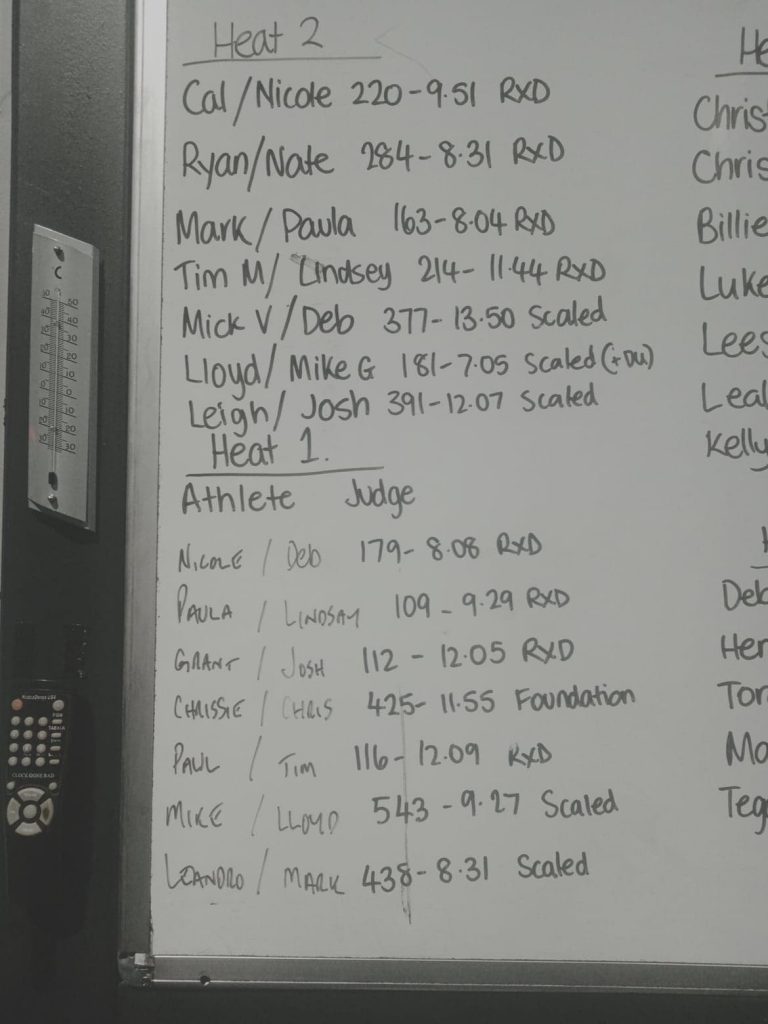 Heat 2
Cal/Nicole 220-9.51 RXD
Ryan/Nate 284-8.31 RXD
Mark/Paula 163-8.04 RXD
Tim M/ Lindsey 214-11.44 RXD
Mick V/Deb 377-13.50 Scaled
Lloyd/Mike G 181-7.05 Scaled(+DU)
Leigh/Josh 391-12.07 Scaled
Heat 1.
Athlete Judge
NICOLE / Deb 179-8.08 RXD
PAULA / LINDSAY 109-9.29 RXD
GRANT / JOSH 112-12.05 RXD
CHRISSIE / CHRIS 425-11.55 Foundation
PAUL / TIM 116-12.09 RXD
MIKE / LLOYD 543-9.27 Scaled
LEANDRO / MARK 438-8.31 Scaled
He
Christ
Chris
Billie
Luke
Lees
Leal
Kelly
H
Deb
Her
Tor
Ma
Tega
C